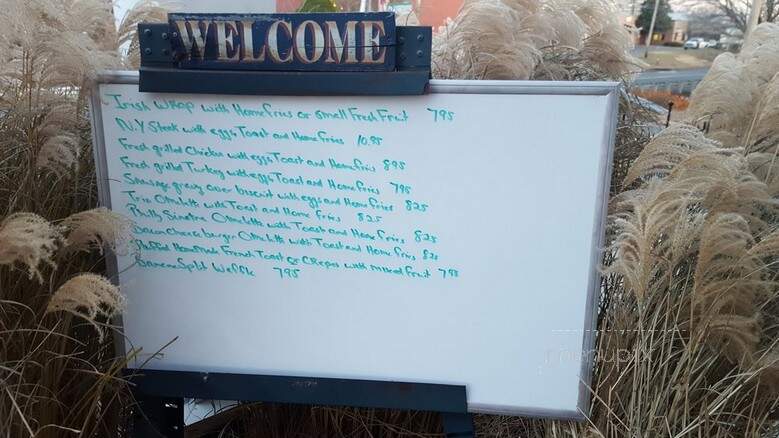 WELCOME
Irish Wrap with Home fries or small Fresh Fruit 795
N.Y Steak with eggs Toast and Home fries 10.95
Fresh grilled Chicken with eggs Toast and Home fries 895
Fresh grilled Turkey with eggs Toast and Home fries 795
Sausage gravy over biscuit with eggs and Home fries 825
Trio Omelette with Toast and Home fries 825
Philly Sinatra Omelette with Toast and Home fries 825
Bacon Cheeseburger Omelette with Toast and Home fries 825
Stuffed HomeMade French Toast or CRepes with Mixed Fruit 795
Banana Split Waffle 795
menupix